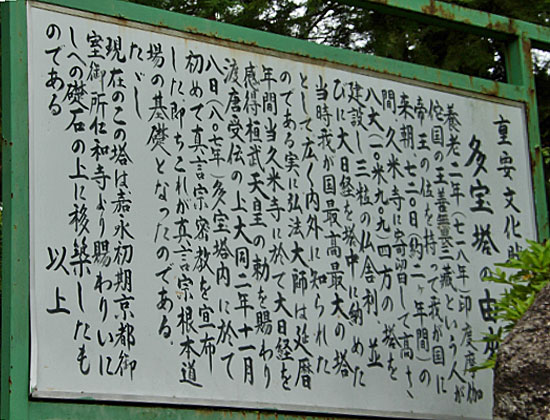 重要文化財
多宝塔の由来
養老二年(七一八年)印度摩伽
佗国の王善無畏三蔵という人が
帝王の位を持って我が国に
来朝し七二〇日(約二ヶ年間)の
間久米寺に寄留して高さ
八丈(一〇米九〇九四方の塔を
建設し三粒の仏舎利並
びに大日経を塔中に納めた
当時我が国最高最大の塔
として広く内外に知られた
のである実に弘法大師は延暦
年間当久米寺に於て大日経を
感得桓武天皇の勅を賜わり
渡唐受伝の上大同二年十一月
八日(八〇七年)多宝塔内に於て
初めて真言宗密教を宣布
した即ちこれが真言宗根本道
場の基礎となったのである。
たゞし
現在のこの塔は嘉永初期京都御
室御所仁和寺より賜わりいに
しへの礎石の上に移築したも
のである
以上